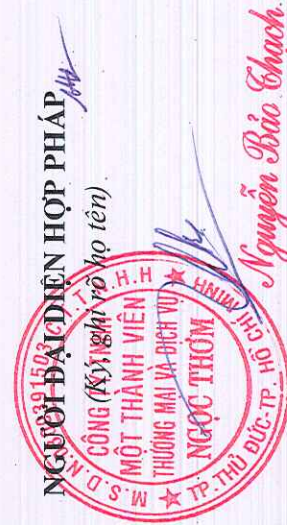 NGƯỜI ĐẠI DIỆN HỢP PHÁP
(Ký, ghi rõ họ tên)
CÔNG TY TNHH
MỘT THÀNH VIÊN
THƯƠNG MẠI VÀ DỊCH VỤ
NGỌC THƠM
TP. THỦ ĐỨC-TP. HỒ CHÍ MINH
Nguyễn Bảo Thạch